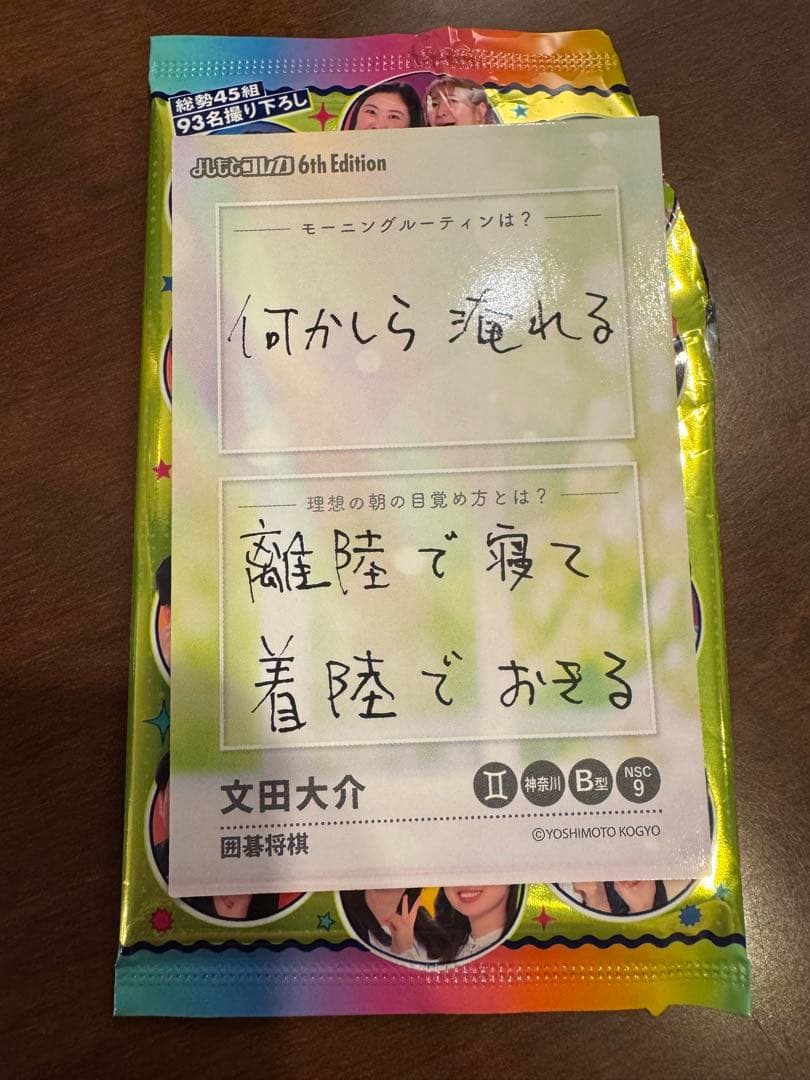 総勢45組
93名撮り下ろし
よしもとコレカ 6th Edition
モーニングルーティンは?
何かしら 淹れる
理想の朝の目覚め方とは?
離陸で寝て
着陸でおきる
文田大介
神奈川 B型 NSC 9
囲碁将棋
©YOSHIMOTO KOGYO